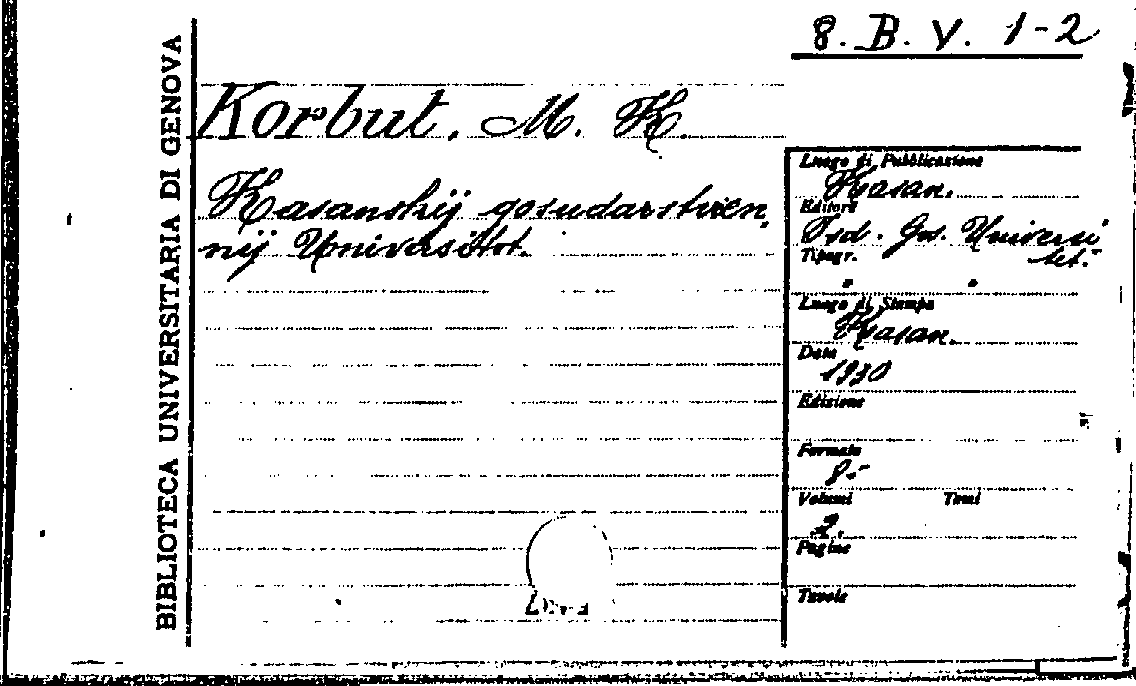 8. B. V. 1-2
BIBLIOTECA UNIVERSITARIA DI GENOVA
Korbut, M. K.
Kasanskij gosudarstven,
nij Universitet.
Luogo di Pubblicazione
Kasan.
Editore
Isd. Gos. Universi
tet.-
Tipogr.
" "
Luogo di Stampa
Kasan.
Data
1930
Edizione
Formato
8.-
Volumi Tomi
2.
Pagine
Tavole